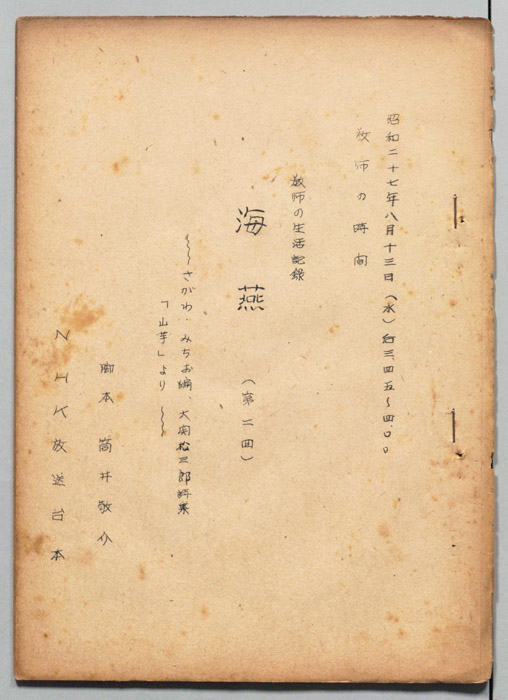 昭和二十七年八月十三日（水）后三、四五～四、〇〇
教師の時間
教師の生活記録
海燕
（第二回）
～～さがわ・みちお編、大関松三郎詩集
「山芋」より～～
脚本 筒井敬介
NHK放送台本